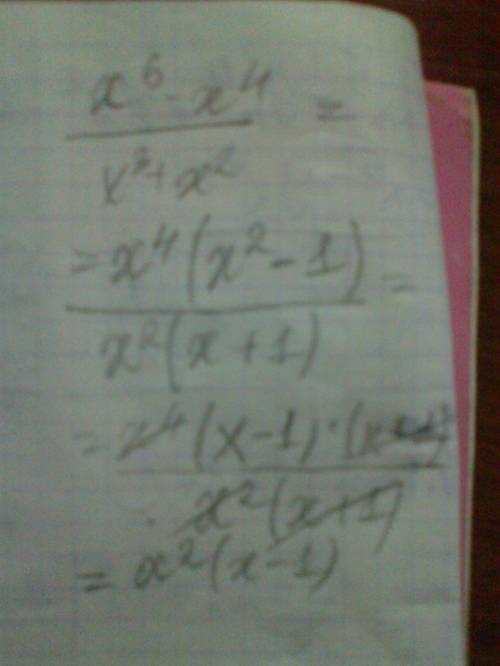 x⁶ - x⁴ =
x³ + x²
= x⁴(x² - 1) =
x²(x + 1)
= x⁴(x - 1)·(x+1)
x²(x+1)
= x²(x - 1)